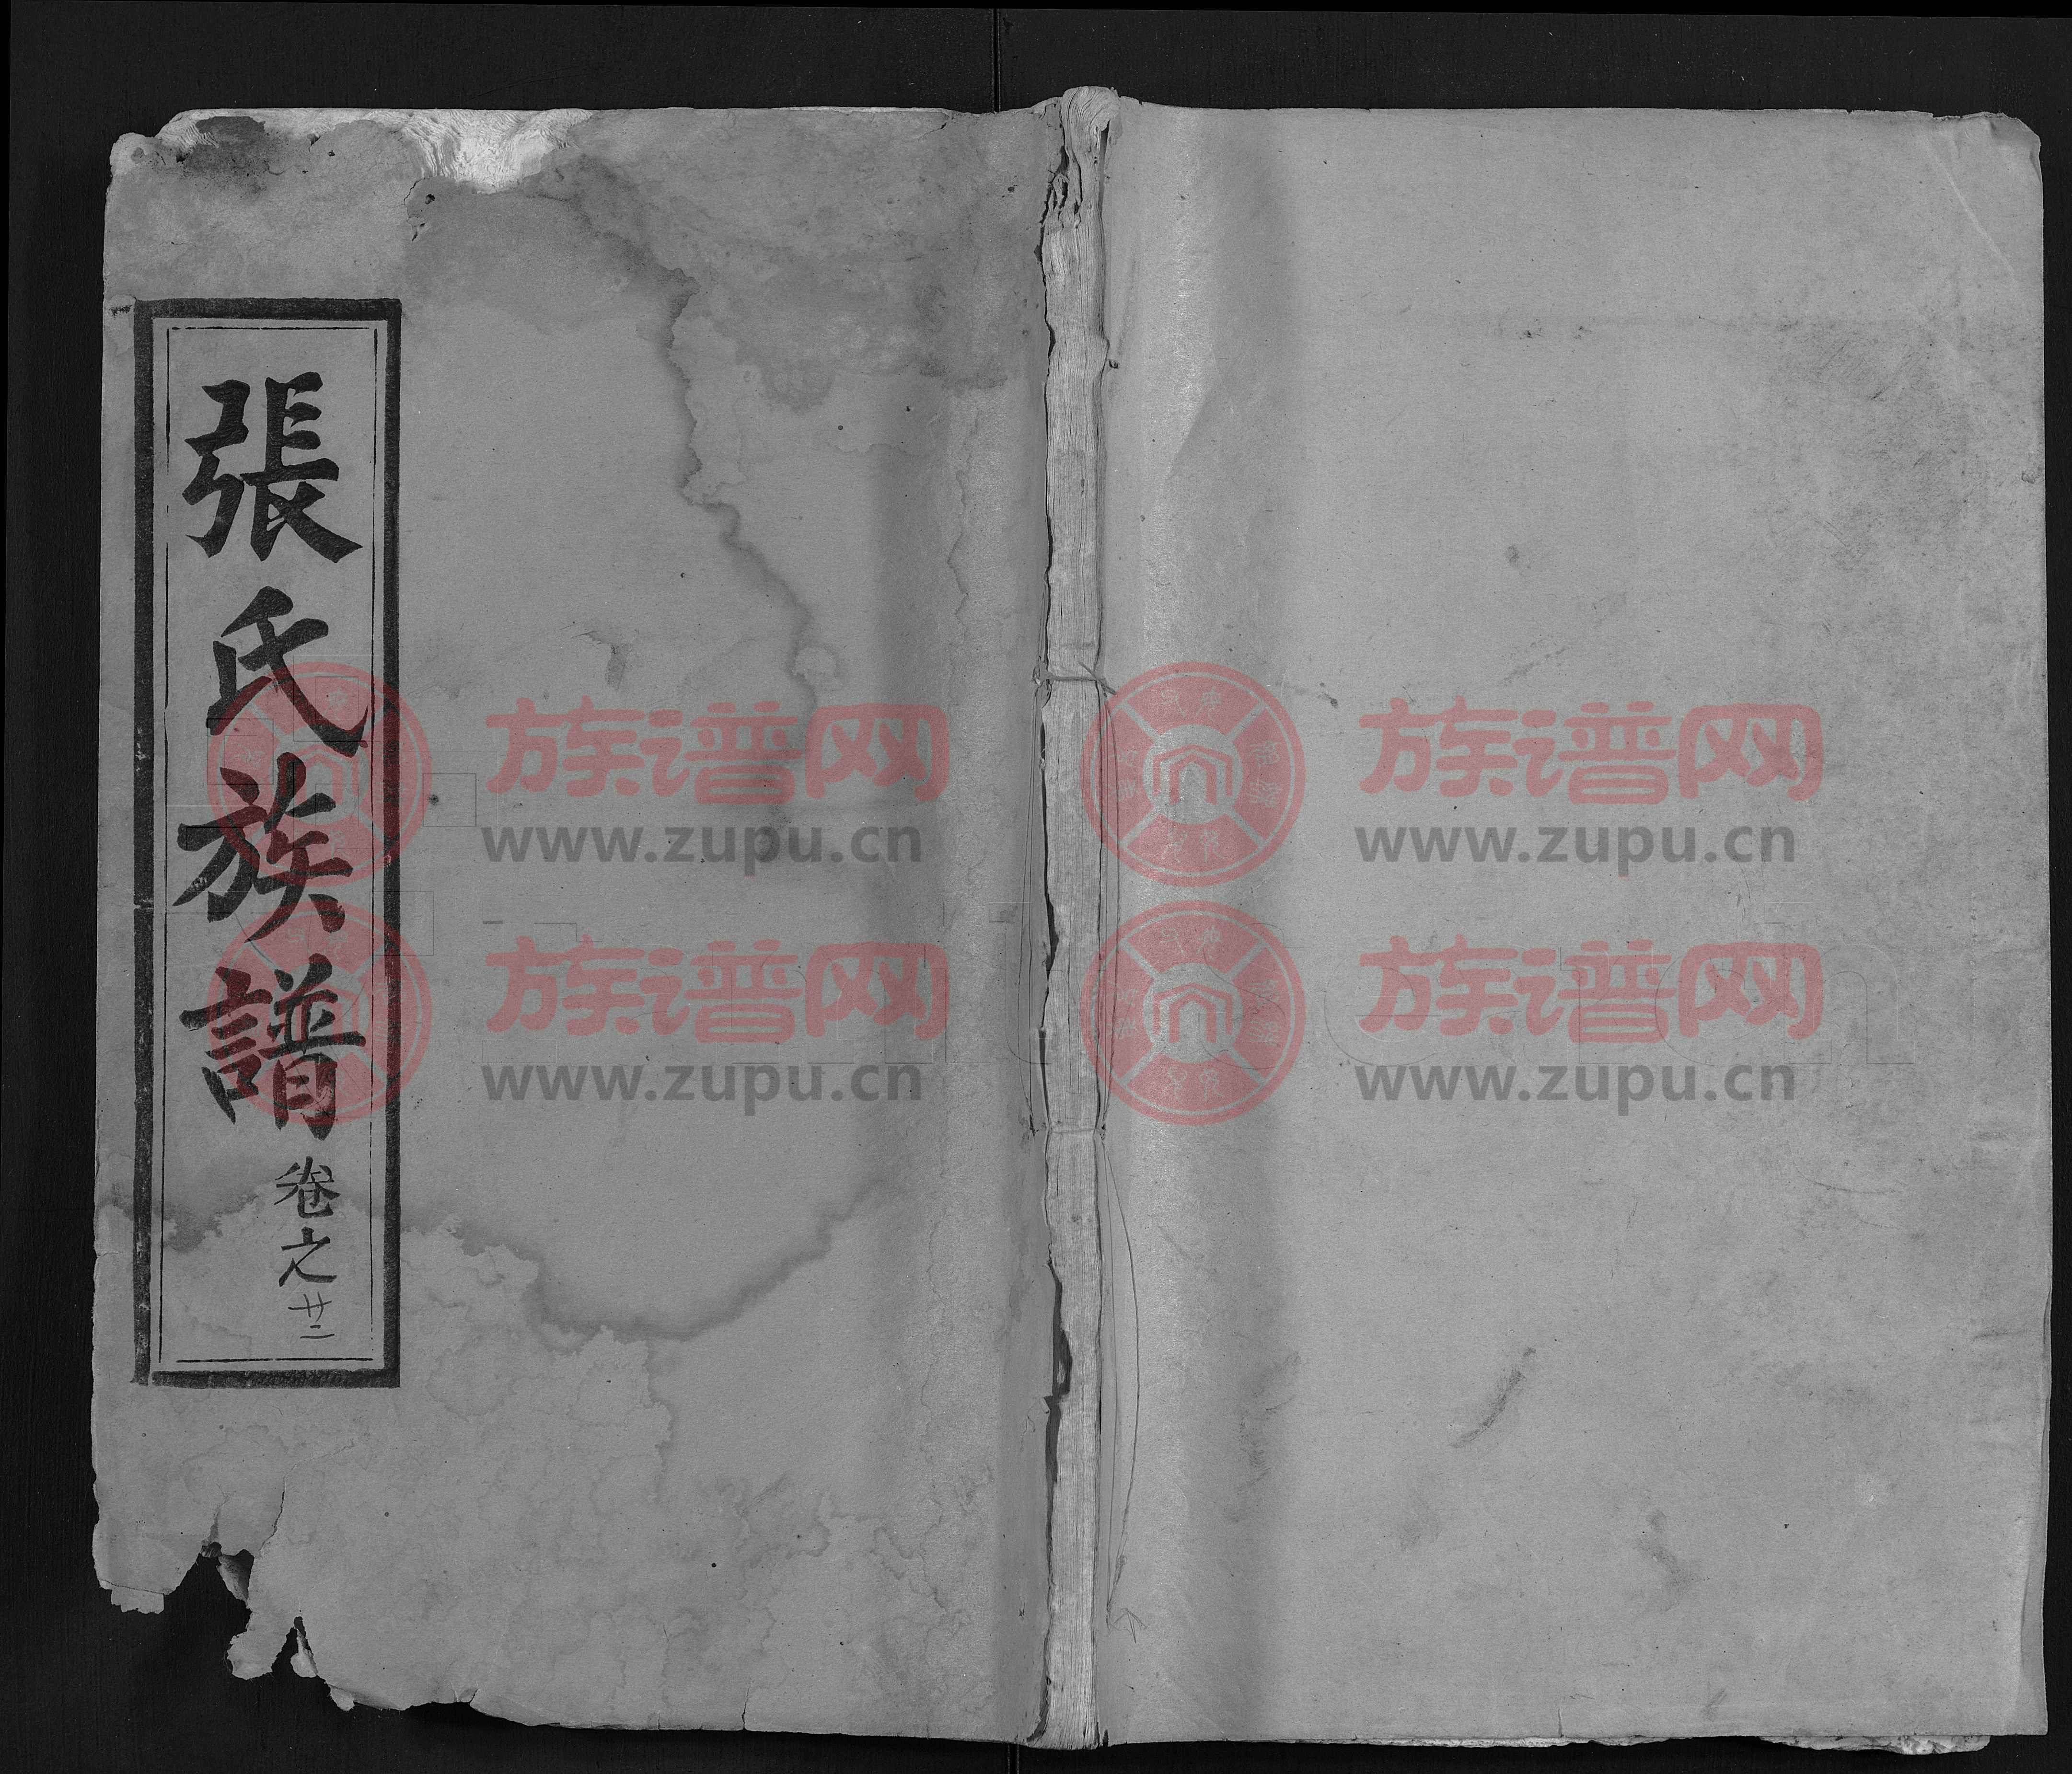 張氏族譜
卷之廿二
族谱网
www.zupu.cn
族谱网
www.zupu.cn
族谱网
www.zupu.cn
族谱网
www.zupu.cn